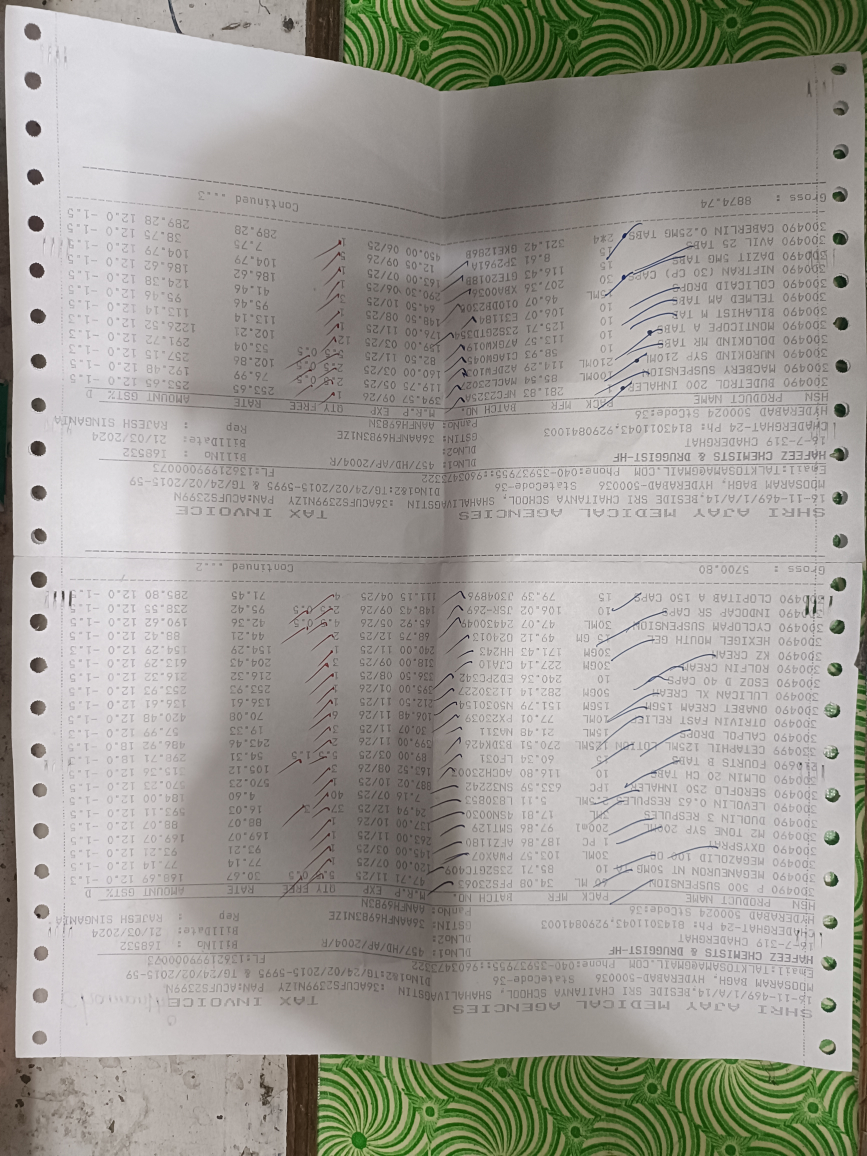 SHRI AJAY MEDICAL AGENCIES TAX INVOICE
16-11-469/1/A/14,BESIDE SRI CHAITANYA SCHOOL, SHAHALIVAGSTIN :36ACUFS2399N1ZY PAN:ACUFS2399N
MOOSARAM BAGH, HYDERABAD-500036 StateCode-36 DlNo1&2:TG/24/02/2015-5995 & TG/24/02/2015-59
Email:TALKTOSAMA@GMAIL.COM Phone:040-35937955;:9603473322 FL:13621999000073
HAFEEZ CHEMISTS & DRUGGIST-HF DLNO1: 457/HD/AP/2004/R
16-7-319 CHADERGHAT DLNO2: BillNo : I68532
CHADERGHAT-24 Ph: 8143011043,9290841003 GSTIN: 36AANFH6983N1ZE BillDate: 21/03/2024
HYDERABAD 500024 StCode:36 PanNo: AANFH6983N Rep : RAJESH SINGANIA
HSN PRODUCT NAME PACK MER BATCH NO. M.R.P EXP QTY FREE RATE AMOUNT GST% D
300490 P 500 SUSPENSION 60 ML 34.08 PFS23063 47.71 11/25 5.5 0.5 30.67 168.69 12.0 -1.5
300490 MEGANEURON NT 50MG TA 10 85.71 120.00 07/25 1 77.14 77.14 12.0 -1.5
300490 30ML 103.57 PMAX07 145.00 03/25 1 93.21 93.21 12.0 -1.5
300490 OXYSPRAY 1 PC 187.86 AFZ1180 263.00 11/25 1 169.07 169.07 12.0 -1.5
300490 MZ TONE SYP 200ML 200ml 97.86 SMT129 137.00 10/26 1 88.07 88.07 12.0 -1.5
300490 DUOLIN 3 RESPULES 3ML 17.81 4SN0030 24.94 12/25 37 3 16.03 593.11 12.0 -1.5
300490 LEVOLIN 0.63 RESPULES 2.5ML 5.11 LB30853 7.16 07/25 40 4.60 184.00 12.0 -1.5
300490 SEROFLO 250 INHALER 1PC 633.59 SN32242 887.02 10/25 1 570.23 570.23 12.0 -1.5
300490 OLMIN 20 CH TABS 10 116.80 AOCH23003 163.52 08/26 3 105.12 315.36 12.0 -1.5
210690 FOURTS B TABS 15 60.34 LF031 89.00 03/25 5.5 1.5 54.31 298.71 18.0 -1.5
330499 CETAPHIL 125ML LOTION 125ML 270.51 B3DK0426 399.00 11/26 2 243.46 486.92 18.0 -1.5
300490 CALPOL DROPS 15ML 21.48 NA311 30.07 11/25 3 19.33 57.99 12.0 -1.5
300490 OTRIVIN FAST RELIEF 10ML 77.01 PX23039 106.48 11/26 6 70.08 420.48 12.0 -1.5
300490 ONABET CREAM 15GM 15GM 151.79 NS030154 212.50 11/25 1 136.61 136.61 12.0 -1.5
300490 LULICAN XL CREAM 50GM 282.14 11230227 395.00 01/26 1 253.93 253.93 12.0 -1.5
300490 ESOZ D 40 CAPS 10 240.36 EDP2C342 336.50 08/25 1 216.32 216.32 12.0 -1.5
300490 ROLFIN CREAM 30GM 227.14 CJA10 318.00 09/25 3 204.43 613.29 12.0 -1.5
300490 KZ CREAM 30GM 171.43 HH243 240.00 11/25 1 154.29 154.29 12.0 -1.5
300490 HEXIGEL MOUTH GEL 15 GM 49.12 024013 68.75 12/25 2 44.21 88.42 12.0 -1.5
300490 CYCLOPAM SUSPENSION 30ML 47.07 24430049 65.92 05/26 4.5 0.5 42.36 190.62 12.0 -1.5
300490 INDOCAP SR CAPS 10 106.02 JSR-269 148.43 09/26 2.5 0.5 95.42 238.55 12.0 -1.5
300490 CLOPITAB A 150 CAPS 15 79.39 3304896 111.15 04/25 4 71.45 285.80 12.0 -1.5
Gross : 5700.80 Continued ...2
SHRI AJAY MEDICAL AGENCIES TAX INVOICE
16-11-469/1/A/14,BESIDE SRI CHAITANYA SCHOOL, SHAHALIVAGSTIN :36ACUFS2399N1ZY PAN:ACUFS2399N
MOOSARAM BAGH, HYDERABAD-500036 StateCode-36 DlNo1&2:TG/24/02/2015-5995 & TG/24/02/2015-59
Email:TALKTOSAMA@GMAIL.COM Phone:040-35937955;:9603473322 FL:13621999000073
HAFEEZ CHEMISTS & DRUGGIST-HF DLNO1: 457/HD/AP/2004/R
16-7-319 CHADERGHAT DLNO2: BillNo : I68532
CHADERGHAT-24 Ph: 8143011043,9290841003 GSTIN: 36AANFH6983N1ZE BillDate: 21/03/2024
HYDERABAD 500024 StCode:36 PanNo: AANFH6983N Rep : RAJESH SINGANIA
HSN PRODUCT NAME PACK MER BATCH NO. M.R.P EXP QTY FREE RATE AMOUNT GST% D
300490 BUDETROL 200 INHALER 1 281.83 NFC2325A 394.57 09/26 1 253.65 253.65 12.0 -1.5
300490 MACBERY SUSPENSION 100ML 85.54 119.75 05/25 2.5 0.5 76.99 192.48 12.0 -1.5
300490 NUROKIND SYP 210ML 210ML 114.29 160.00 03/25 2.5 0.5 102.86 257.15 12.0 -1.5
300490 DOLOKIND MR TABS 10 58.93 82.50 11/25 5.5 0.5 53.04 291.72 12.0 -1.3
300490 MONTICOPE A TABS 10 113.57 159.00 03/25 12 102.21 1226.52 12.0 -1.5
300490 BILAHIST M TAB 10 125.71 176.00 11/25 1 113.14 113.14 12.0 -1.5
300490 TELMED AM TABS 10 106.07 148.50 08/25 1 95.46 95.46 12.0 -1.5
300490 COLICAID DROPS 15ML 46.07 64.50 10/25 3 41.46 124.38 12.0 -1.5
300490 NIFTRAN (30 CP) CAPS 30 207.36 290.30 06/25 1 186.62 186.62 12.0 -1.5
300490 DAZIT 5MG TABS 15 116.43 GTE2018B 163.00 07/25 1 104.79 104.79 12.0 -1.5
300490 AVIL 25 TABS 15 8.61 3P2961A 12.05 09/26 5 7.75 38.75 12.0 -1.5
300490 CABERLIN 0.25MG TABS 2*4 321.42 GKE1286B 450.00 06/25 1 289.28 289.28 12.0 -1.5
Gross : 8874.74 Continued ...3